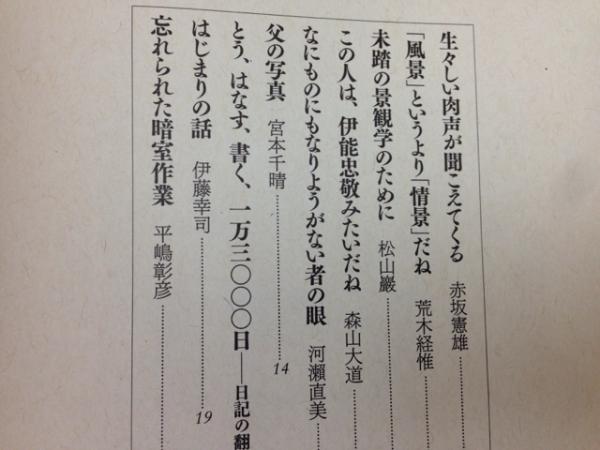 生々しい肉声が聞こえてくる　赤坂憲雄
「風景」というより「情景」だね　荒木経惟
未踏の景観学のために　松山巖
この人は、伊能忠敬みたいだね　森山大道
なにものにもなりようがない者の眼　河瀨直美
父の写真　宮本千晴 14
とう、はなす、書く、一万三〇〇〇日──日記の翻
はじまりの話　伊藤幸司 19
忘れられた暗室作業　平嶋彰彦